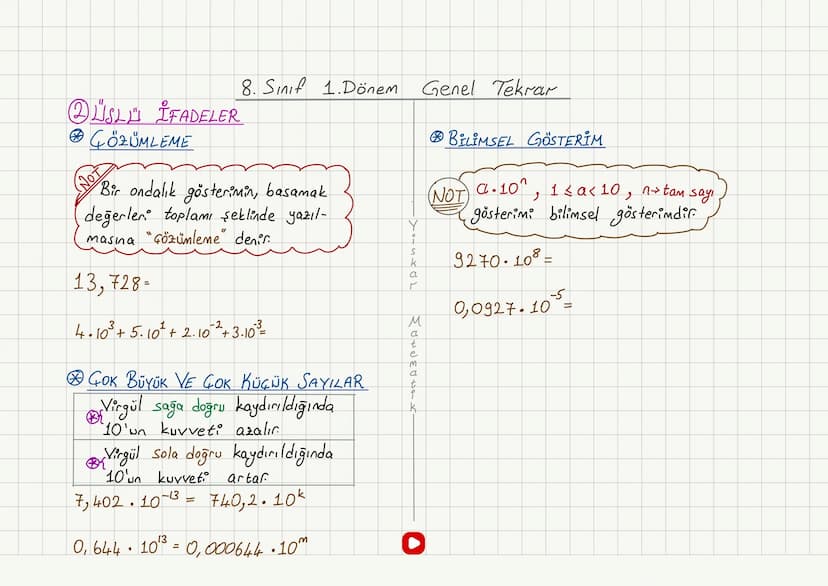 8. Sınıf 1.Dönem Genel Tekrar
② ÜSLÜ İFADELER
⊛ ÇÖZÜMLEME
NOT
Bir ondalık gösterimin, basamak
değerleri toplamı şeklinde yazıl-
masına "çözümleme" denir.
13,728=
4·10³+5·10¹+2·10⁻²+3·10⁻³=
⊛ ÇOK BÜYÜK VE ÇOK KÜÇÜK SAYILAR
Virgül sağa doğru kaydırıldığında
10'un kuvveti azalır.
Virgül sola doğru kaydırıldığında
10'un kuvveti artar.
7,402·10⁻¹³ = 740,2·10ᵏ
0,644·10¹³ = 0,000644·10ᵐ
Yiskar Matematik
⊛ BİLİMSEL GÖSTERİM
NOT
a·10ⁿ, 1≤a<10, n→tam sayı
gösterimi bilimsel gösterimdir.
9270·10⁸=
0,0927·10⁻⁵=